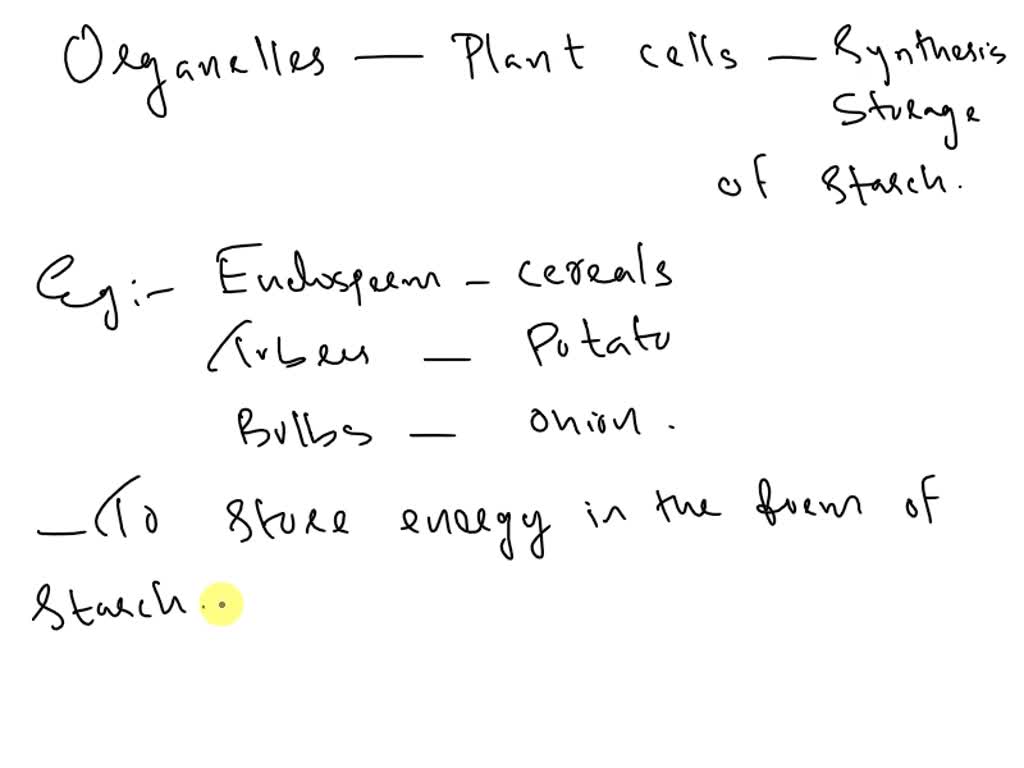 Organelles — Plant cells — Synthesis
Storage
of starch.
Eg:- Endosperm - cereals
Tubers — Potato
Bulbs — onion.
— To store energy in the form of
starch.